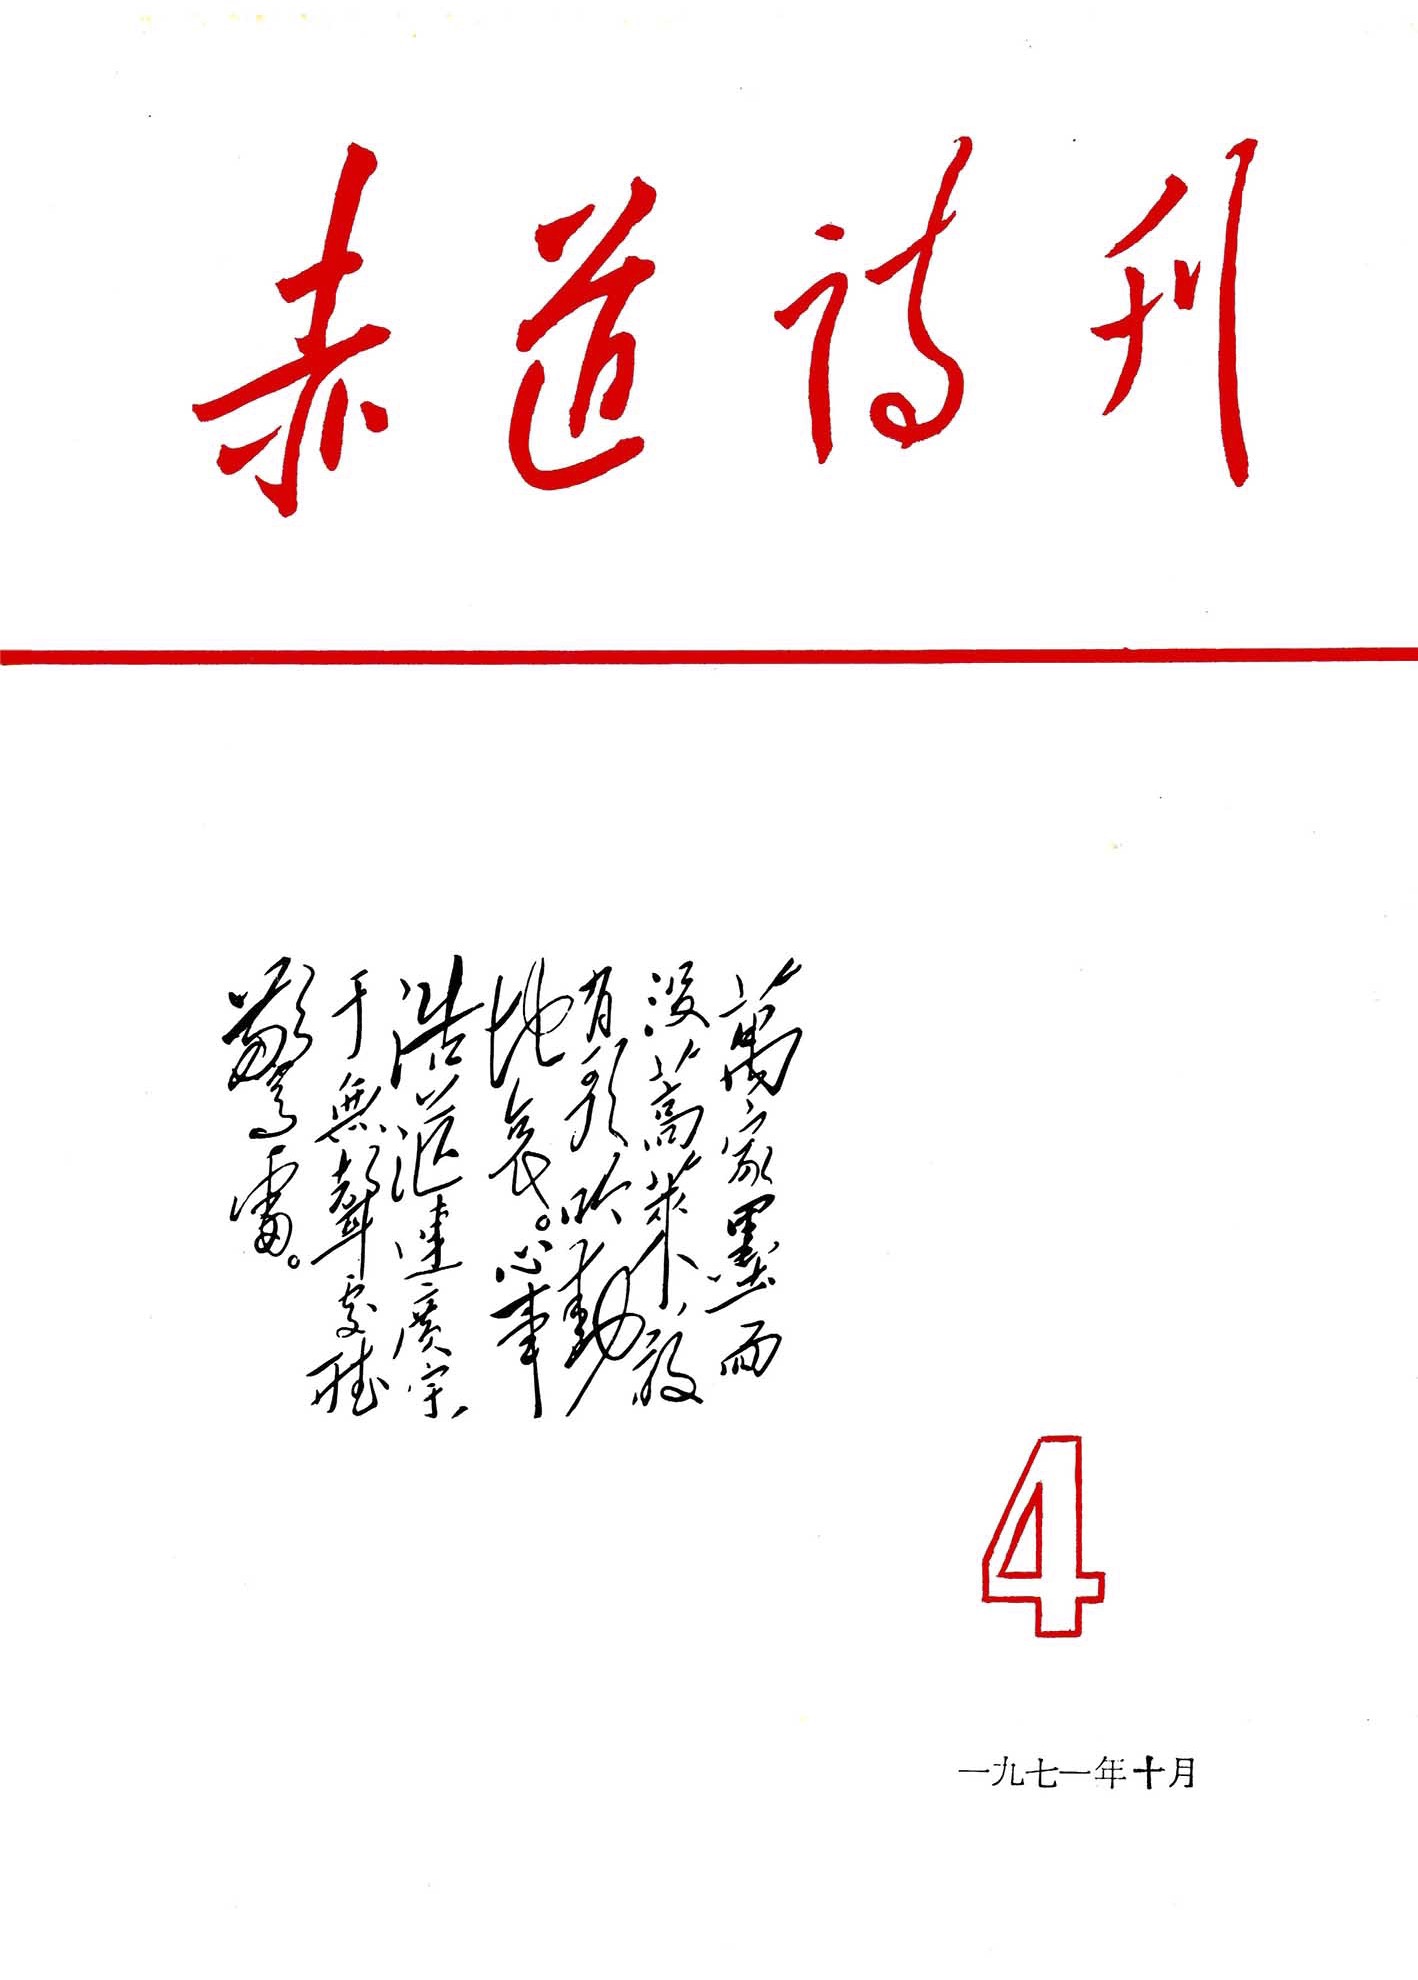 赤道诗刊
萬家墨面
沒蒿萊,敢
有歌吟動
地哀。心事
浩茫連廣宇,
于無聲處聽
驚雷。
4
一九七一年十月